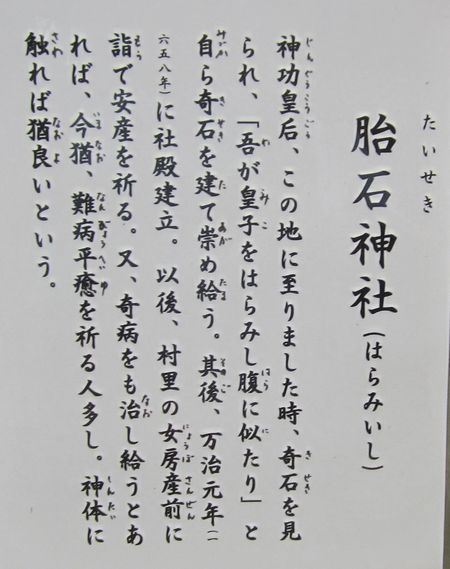 胎石神社（はらみいし）
神功皇后、この地に至りました時、奇石を見
られ、「吾が皇子をはらみし腹に似たり」と
自ら奇石を建て崇め給う。其後、万治元年（一
六五八年）に社殿建立。以後、村里の女房産前に
詣で安産を祈る。又、奇病をも治し給うとあ
れば、今猶、難病平癒を祈る人多し。神体に
触れば猶良いという。